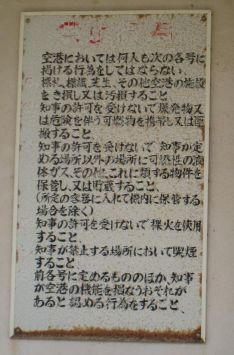 空港においては何人も次の各号に
掲げる行為をしてはならない
標札、標識、芝生、その他空港の施設
をき損し又は汚損すること
知事の許可を受けないで爆発物又
は危険を伴う可燃物を携帯し又は運
搬すること
知事の許可を受けないで知事が定
める場所以外の場所に可燃性の液
体ガス、その他、これに類する物件を
保管し、又は貯蔵すること、
(所定の容器に入れて機内に保管する
場合を除く)
知事の許可を受けないで裸火を使用
すること、
知事が禁止する場所において喫煙
すること、
前各号に定めるもののほか、知事
が空港の機能を損なうおそれが
あると認める行為をすること